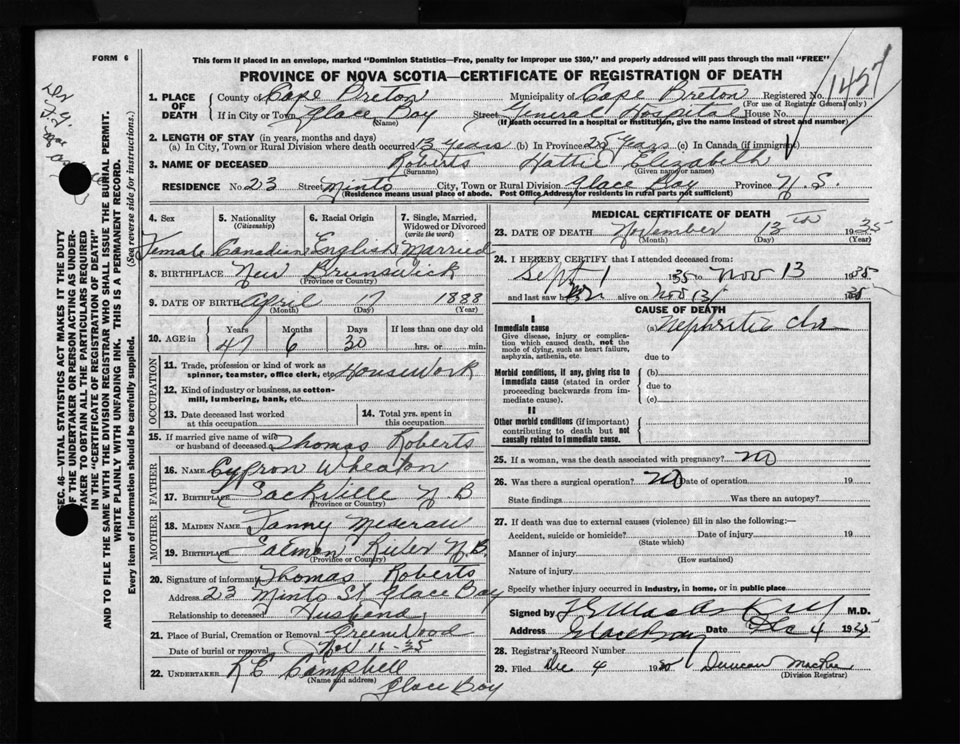 FORM 6
This form if placed in an envelope, marked "Dominion Statistics—Free, penalty for improper use $300," and properly addressed will pass through the mail "FREE"
PROVINCE OF NOVA SCOTIA—CERTIFICATE OF REGISTRATION OF DEATH
1427
1. PLACE OF DEATH
County of Cape Breton Municipality of Cape Breton Registered No.
(For use of Registrar General only)
If in City or Town Glace Bay Street General Hospital House No.
(Name) (If death occurred in a hospital or institution, give the name instead of street and number)
2. LENGTH OF STAY (in years, months and days)
(a) In City, Town or Rural Division where death occurred 13 years (b) In Province 29 years (c) In Canada (if immigrant)
3. NAME OF DECEASED Roberts Hattie Elizabeth
(Surname) (Given name or names)
RESIDENCE No. 23 Street Minto City, Town or Rural Division Glace Bay Province N.S.
(Residence means usual place of abode. Post Office Address for residents in rural parts not sufficient)
4. Sex 5. Nationality (Citizenship) 6. Racial Origin 7. Single, Married, Widowed or Divorced (write the word)
Female Canadian English Married
8. BIRTHPLACE New Brunswick
(Province or Country)
9. DATE OF BIRTH April 17 1888
(Month) (Day) (Year)
10. AGE in Years Months Days If less than one day old
47 6 30 hrs. or min.
OCCUPATION
11. Trade, profession or kind of work as spinner, teamster, office clerk, etc. Housework
12. Kind of industry or business, as cotton-mill, lumbering, bank, etc.
13. Date deceased last worked at this occupation
14. Total yrs. spent in this occupation
15. If married give name of wife or husband of deceased Thomas Roberts
FATHER
16. NAME Wheaton
17. BIRTHPLACE Sackville N B
(Province or Country)
MOTHER
18. MAIDEN NAME Fanny
19. BIRTHPLACE Salmon River N.B.
(Province or Country)
20. Signature of informant Thomas Roberts
Address 23 Minto St Glace Bay
Relationship to deceased Husband
21. Place of Burial, Cremation or Removal Greenwood
Date of burial or removal Nov 16-35
22. UNDERTAKER R E Campbell
(Name and address)
Glace Bay
MEDICAL CERTIFICATE OF DEATH
23. DATE OF DEATH November 13TH 1935
(Month) (Day) (Year)
24. I HEREBY CERTIFY that I attended deceased from:
Sept 1 1935 to Nov 13 1935
and last saw h alive on Nov 13 1935
CAUSE OF DEATH
I
Immediate cause
Give disease, injury or complication which caused death, not the mode of dying, such as heart failure, asphyxia, asthenia, etc.
(a) Nephritis chr
due to
Morbid conditions, if any, giving rise to immediate cause (stated in order proceeding backwards from immediate cause).
(b)
due to
(c)
II
Other morbid conditions (if important) contributing to death but not causally related to immediate cause.
25. If a woman, was the death associated with pregnancy? NO
26. Was there a surgical operation? NO Date of operation 19
State findings Was there an autopsy?
27. If death was due to external causes (violence) fill in also the following:—
Accident, suicide or homicide? Date of injury 19
(State which)
Manner of injury
(How sustained)
Nature of injury
Specify whether injury occurred in industry, in home, or in public place
Signed by M.D.
Address Glace Bay Date Dec 4 1935
28. Registrar's Record Number
29. Filed Dec 4 19 Duncan MacRae
(Division Registrar)
SEC. 46—VITAL STATISTICS ACT MAKES IT THE DUTY
OF THE UNDERTAKER OR PERSON ACTING AS UNDER-
TAKER TO OBTAIN ALL THE PARTICULARS REQUIRED
IN THE "CERTIFICATE OF REGISTRATION OF DEATH"
AND TO FILE THE SAME WITH THE DIVISION REGISTRAR WHO SHALL ISSUE THE BURIAL PERMIT.
WRITE PLAINLY WITH UNFADING INK. THIS IS A PERMANENT RECORD.
Every item of information should be carefully supplied. (See reverse side for instructions.)